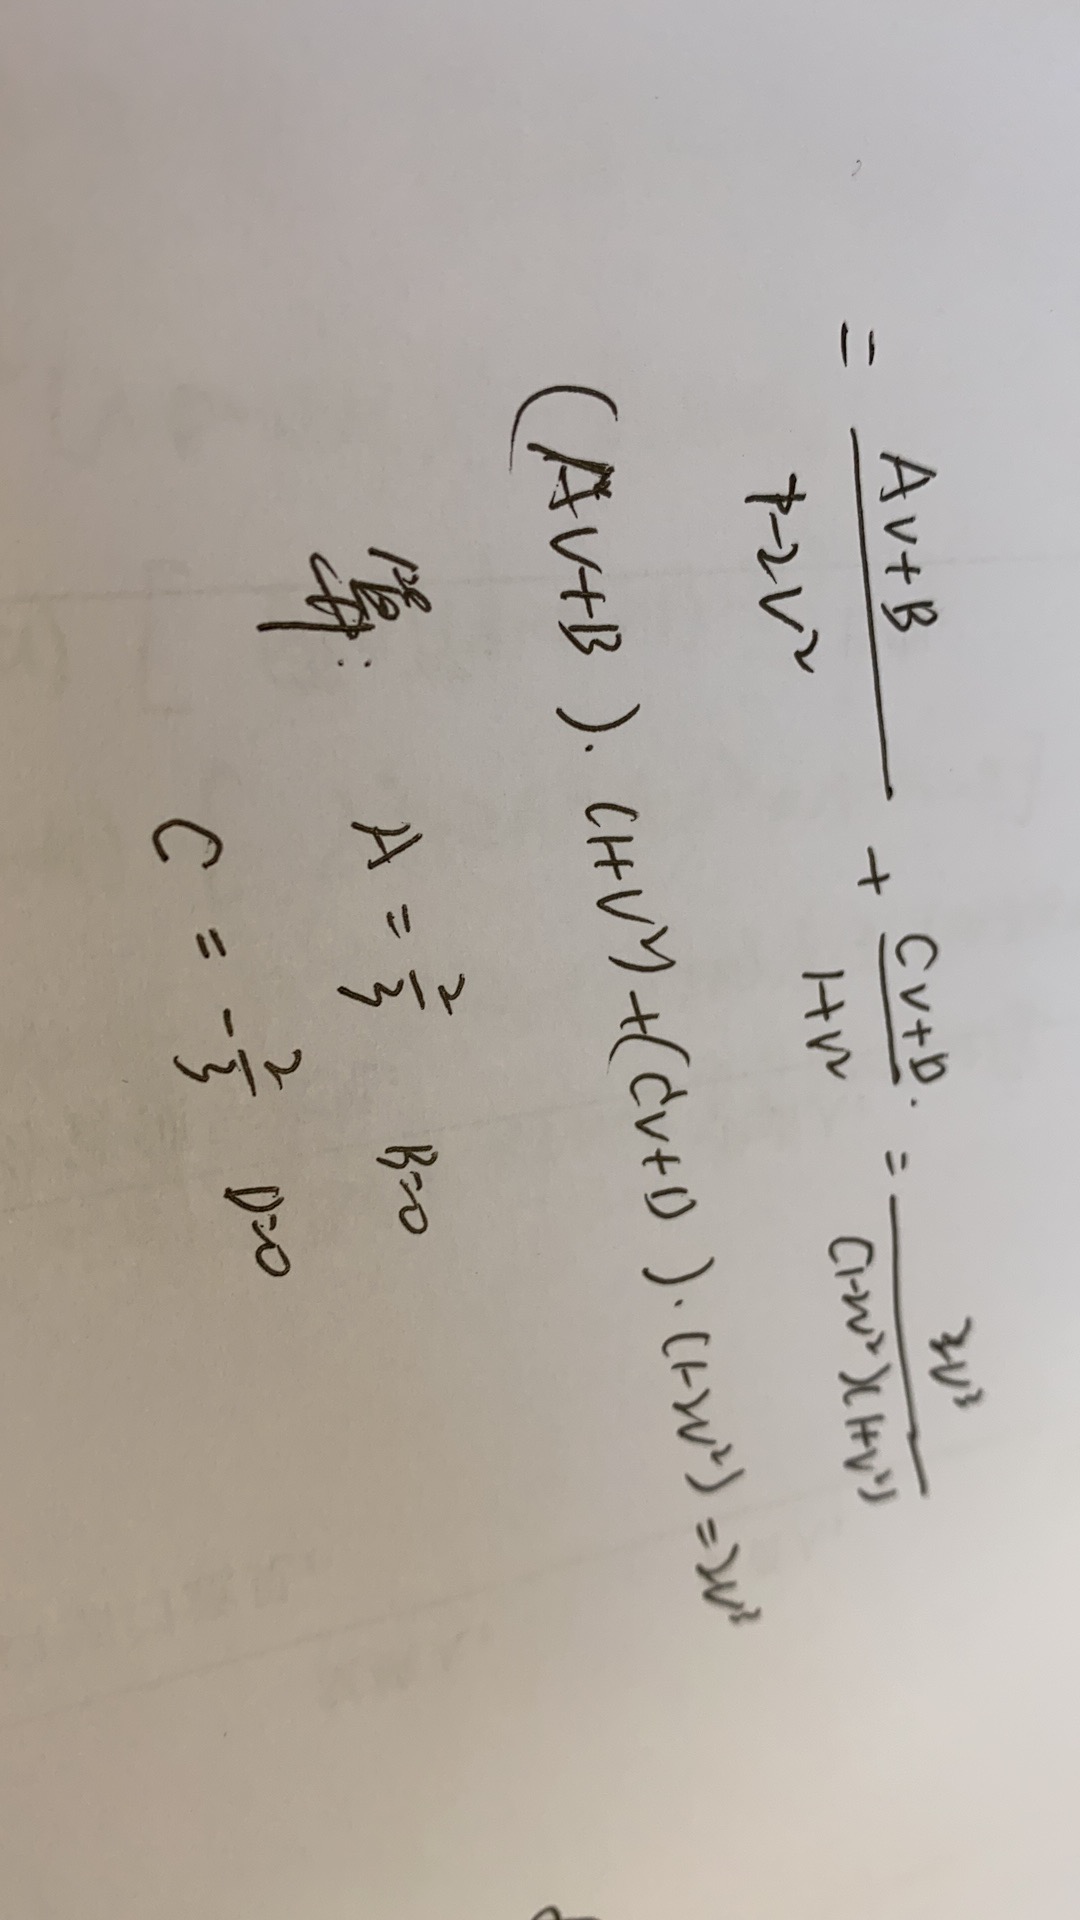 = \frac{Av+B}{1-2v²} + \frac{Cv+D}{1+v²}. = \frac{2v³}{(1-2v²)(1+v²)}
(Av+B). (1+v²)+(Cv+D). (1-2v²)=2v³
解: A = \frac{2}{3} B=0
C = -\frac{2}{3} D=0